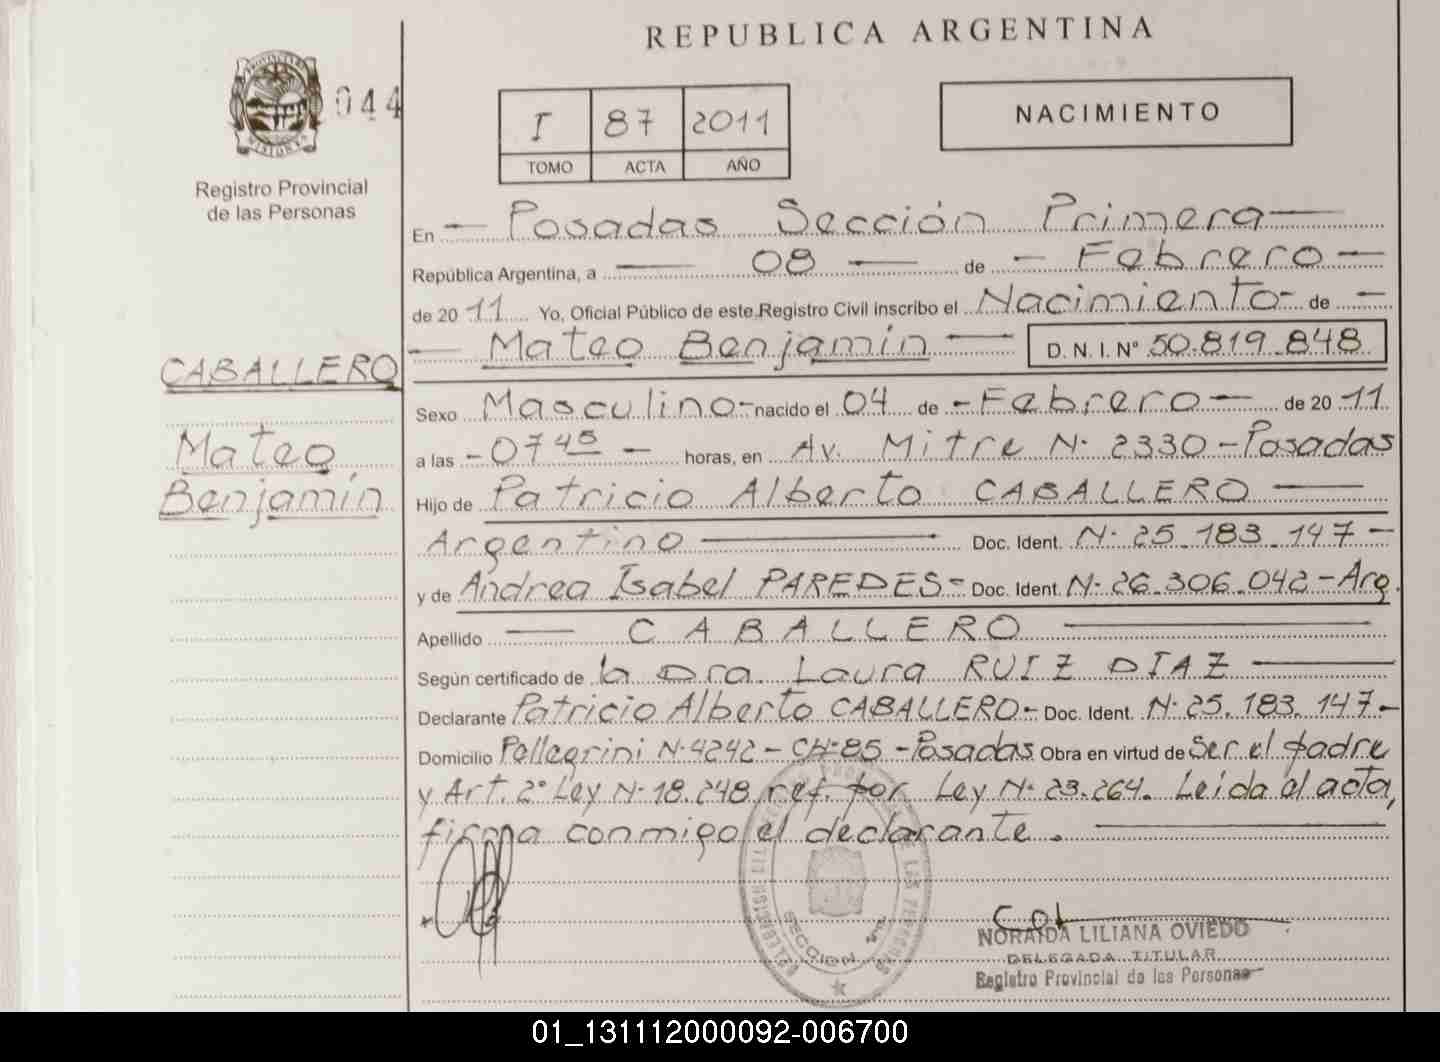 REPUBLICA ARGENTINA
044
Registro Provincial
de las Personas
I 87 2011
TOMO ACTA AÑO
NACIMIENTO
En Posadas Sección Primera
República Argentina, a 08 de Febrero
de 2011 Yo, Oficial Público de este Registro Civil inscribo el Nacimiento de
Mateo Benjamín D. N. I. Nº 50.819.848
CABALLERO
Mateo
Benjamín
Sexo Masculino nacido el 04 de Febrero de 2011
a las 0745 horas, en Av. Mitre N· 2330 - Posadas
Hijo de Patricio Alberto CABALLERO
Argentino Doc. Ident. N· 25.183.147
y de Andrea Isabel PAREDES Doc. Ident. N· 26.306.042 - Arg.
Apellido CABALLERO
Según certificado de la Dra. Laura RUIZ DIAZ
Declarante Patricio Alberto CABALLERO Doc. Ident. N· 25.183.147
Domicilio Pellegrini N· 4242 - CH·85 - Posadas Obra en virtud de Ser el padre
y Art. 2º Ley N· 18.248 ref. por Ley N· 23.264. Leida el acta,
firma conmigo el declarante.
NORAIDA LILIANA OVIEDO
DELEGADA TITULAR
Registro Provincial de las Personas
SECCION
01_131112000092-006700